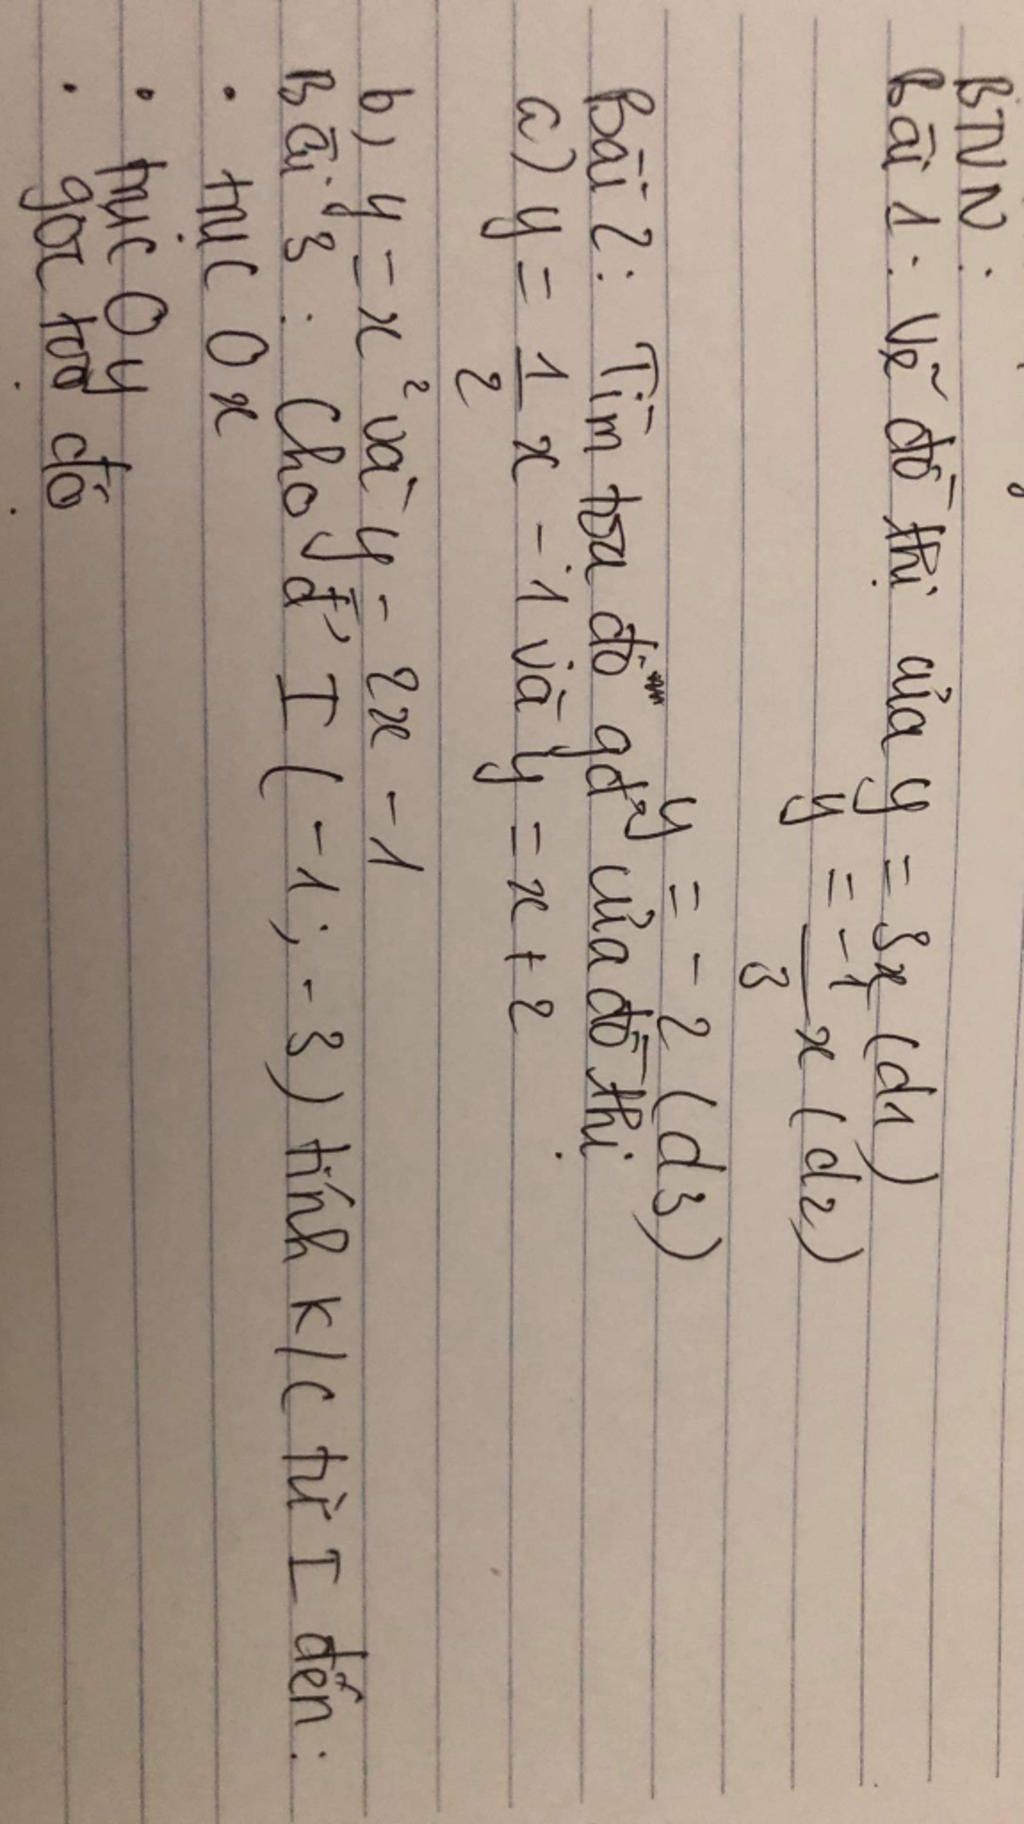 BTVN:
Bài 1: Vẽ đồ thị của y = 3x (d1)
y = -1/3 x (d2)
y = -2 (d3)
Bài 2: Tìm tọa độ gđ của đồ thị
a) y = 1/2 x - 1 và y = x + 2
b) y = x² và y = 2x - 1
Bài 3: Cho đ' I (-1; -3) tính k/c từ I đến:
• trục Ox
• trục Oy
• gốc toạ độ